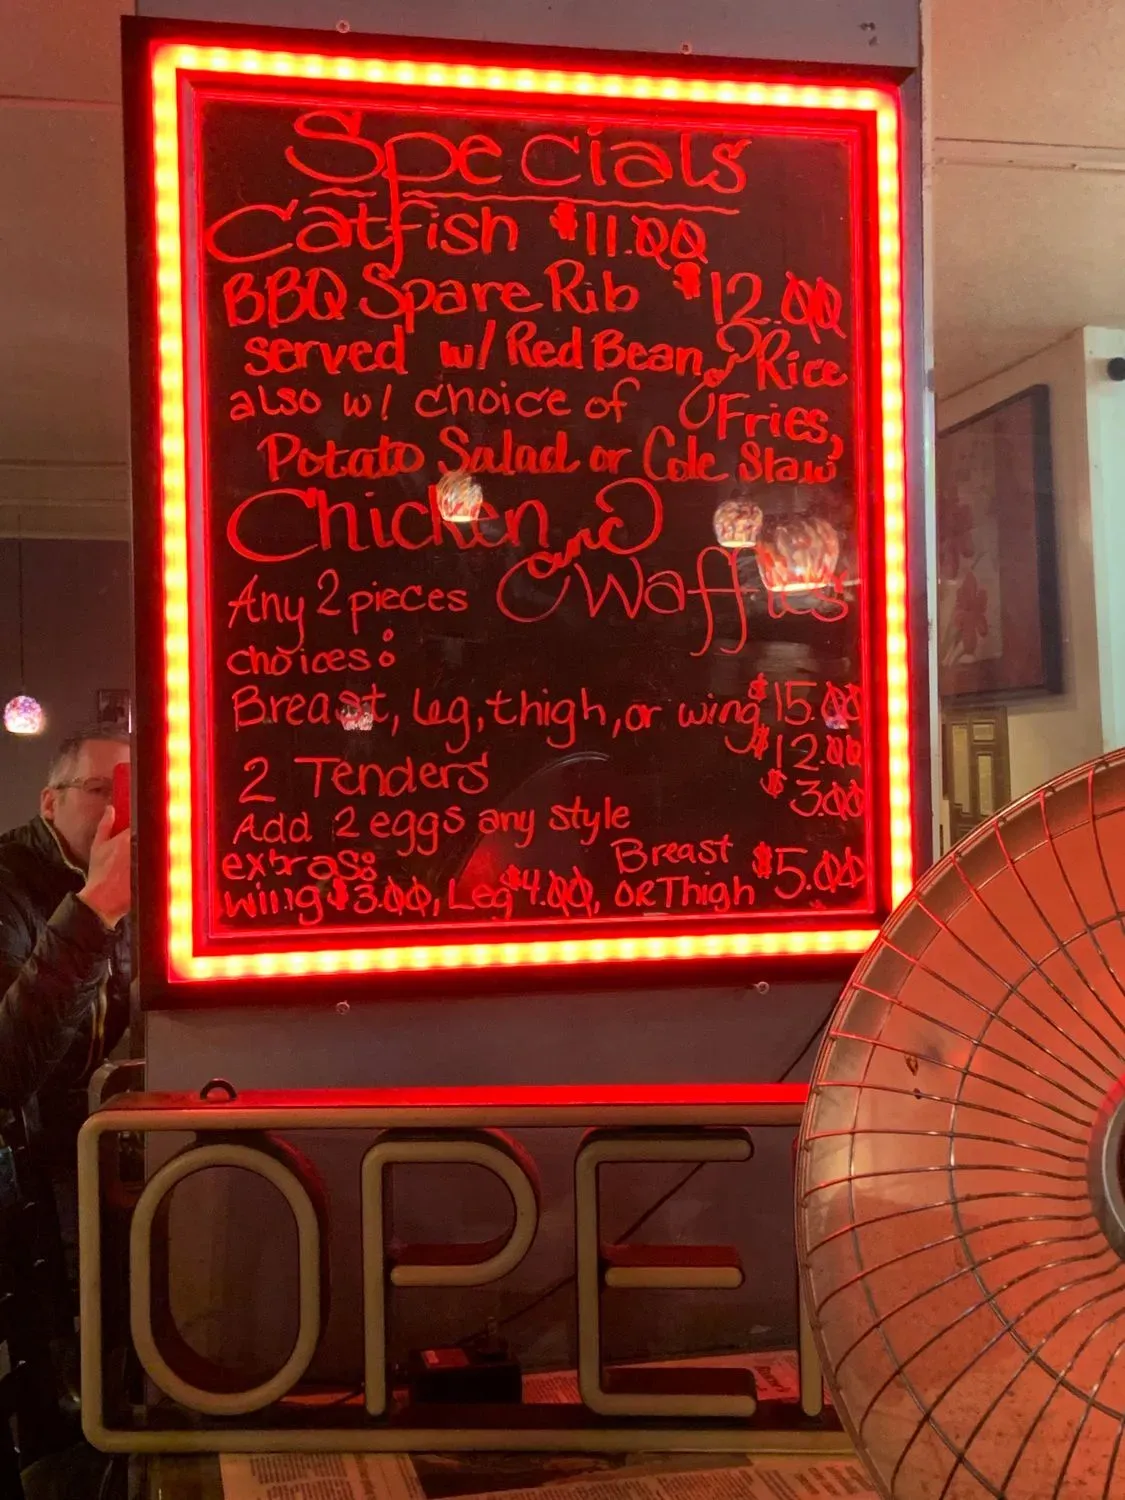 Specials
Catfish $11.00
BBQ Spare Rib $12.00
served w/ Red Bean & Rice
also w/ choice of Fries,
Potato Salad or Cole Slaw
Chicken and
Waffles
Any 2 pieces
choices:
Breast, Leg, thigh, or wing $15.00
2 Tenders $12.00
Add 2 eggs any style $3.00
extras:
wing $3.00, Leg $4.00, Breast OR Thigh $5.00
OPE